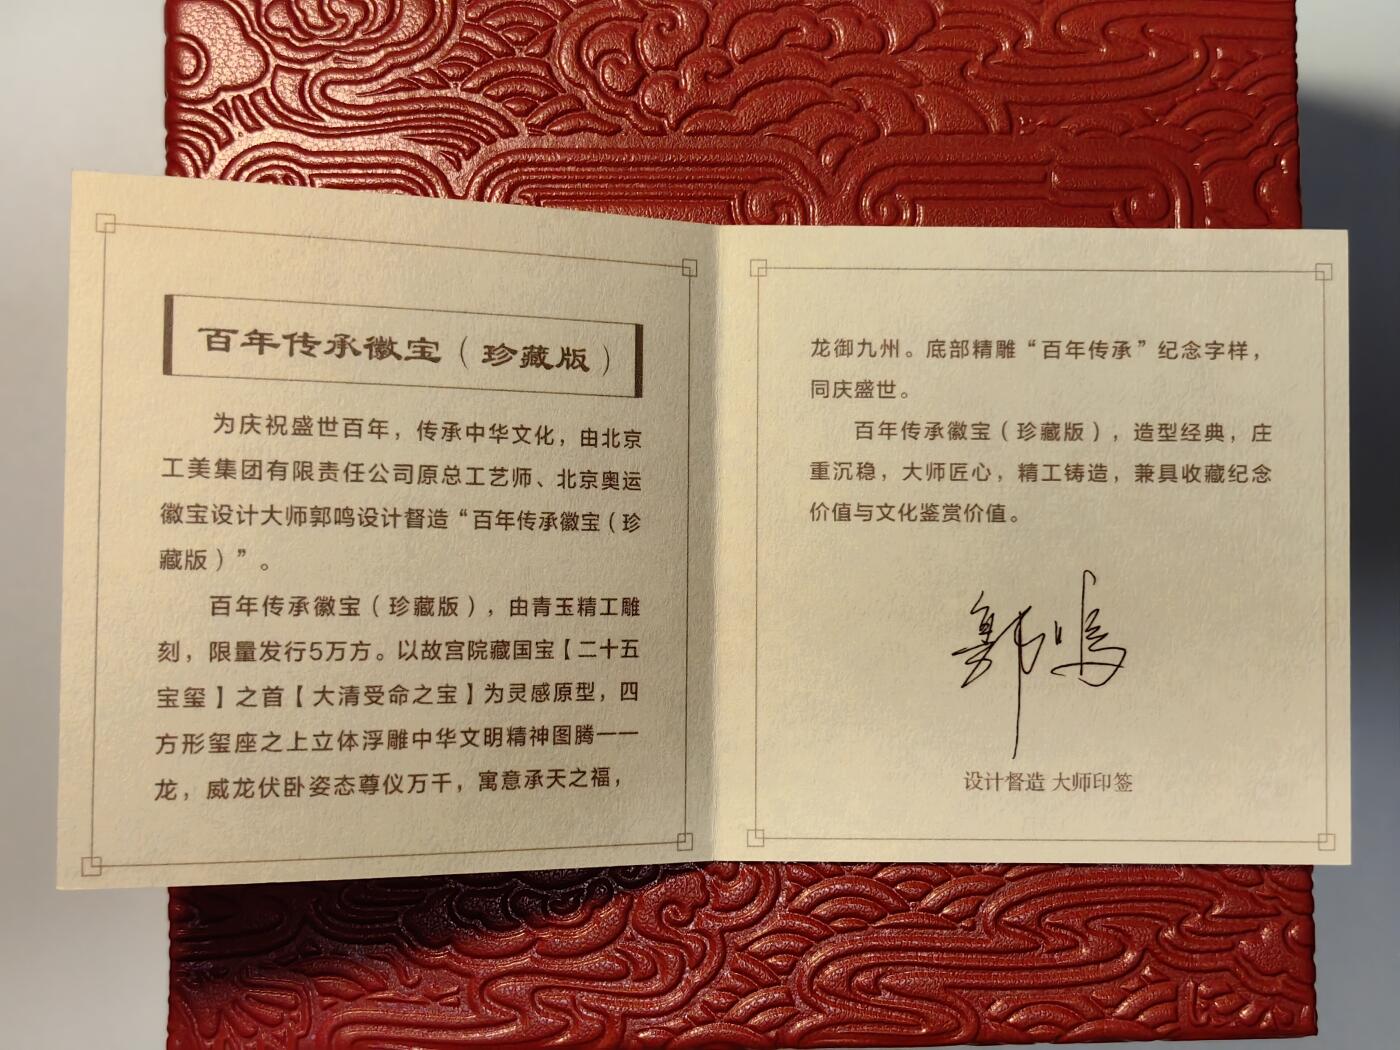 百年传承徽宝（珍藏版）
为庆祝盛世百年，传承中华文化，由北京
工美集团有限责任公司原总工艺师、北京奥运
徽宝设计大师郭鸣设计督造“百年传承徽宝（珍
藏版）”。
百年传承徽宝（珍藏版），由青玉精工雕
刻，限量发行5万方。以故宫院藏国宝【二十五
宝玺】之首【大清受命之宝】为灵感原型，四
方形玺座之上立体浮雕中华文明精神图腾——
龙，威龙伏卧姿态尊仪万千，寓意承天之福，
龙御九州。底部精雕“百年传承”纪念字样，
同庆盛世。
百年传承徽宝（珍藏版），造型经典，庄
重沉稳，大师匠心，精工铸造，兼具收藏纪念
价值与文化鉴赏价值。
郭鸣
设计督造 大师印签